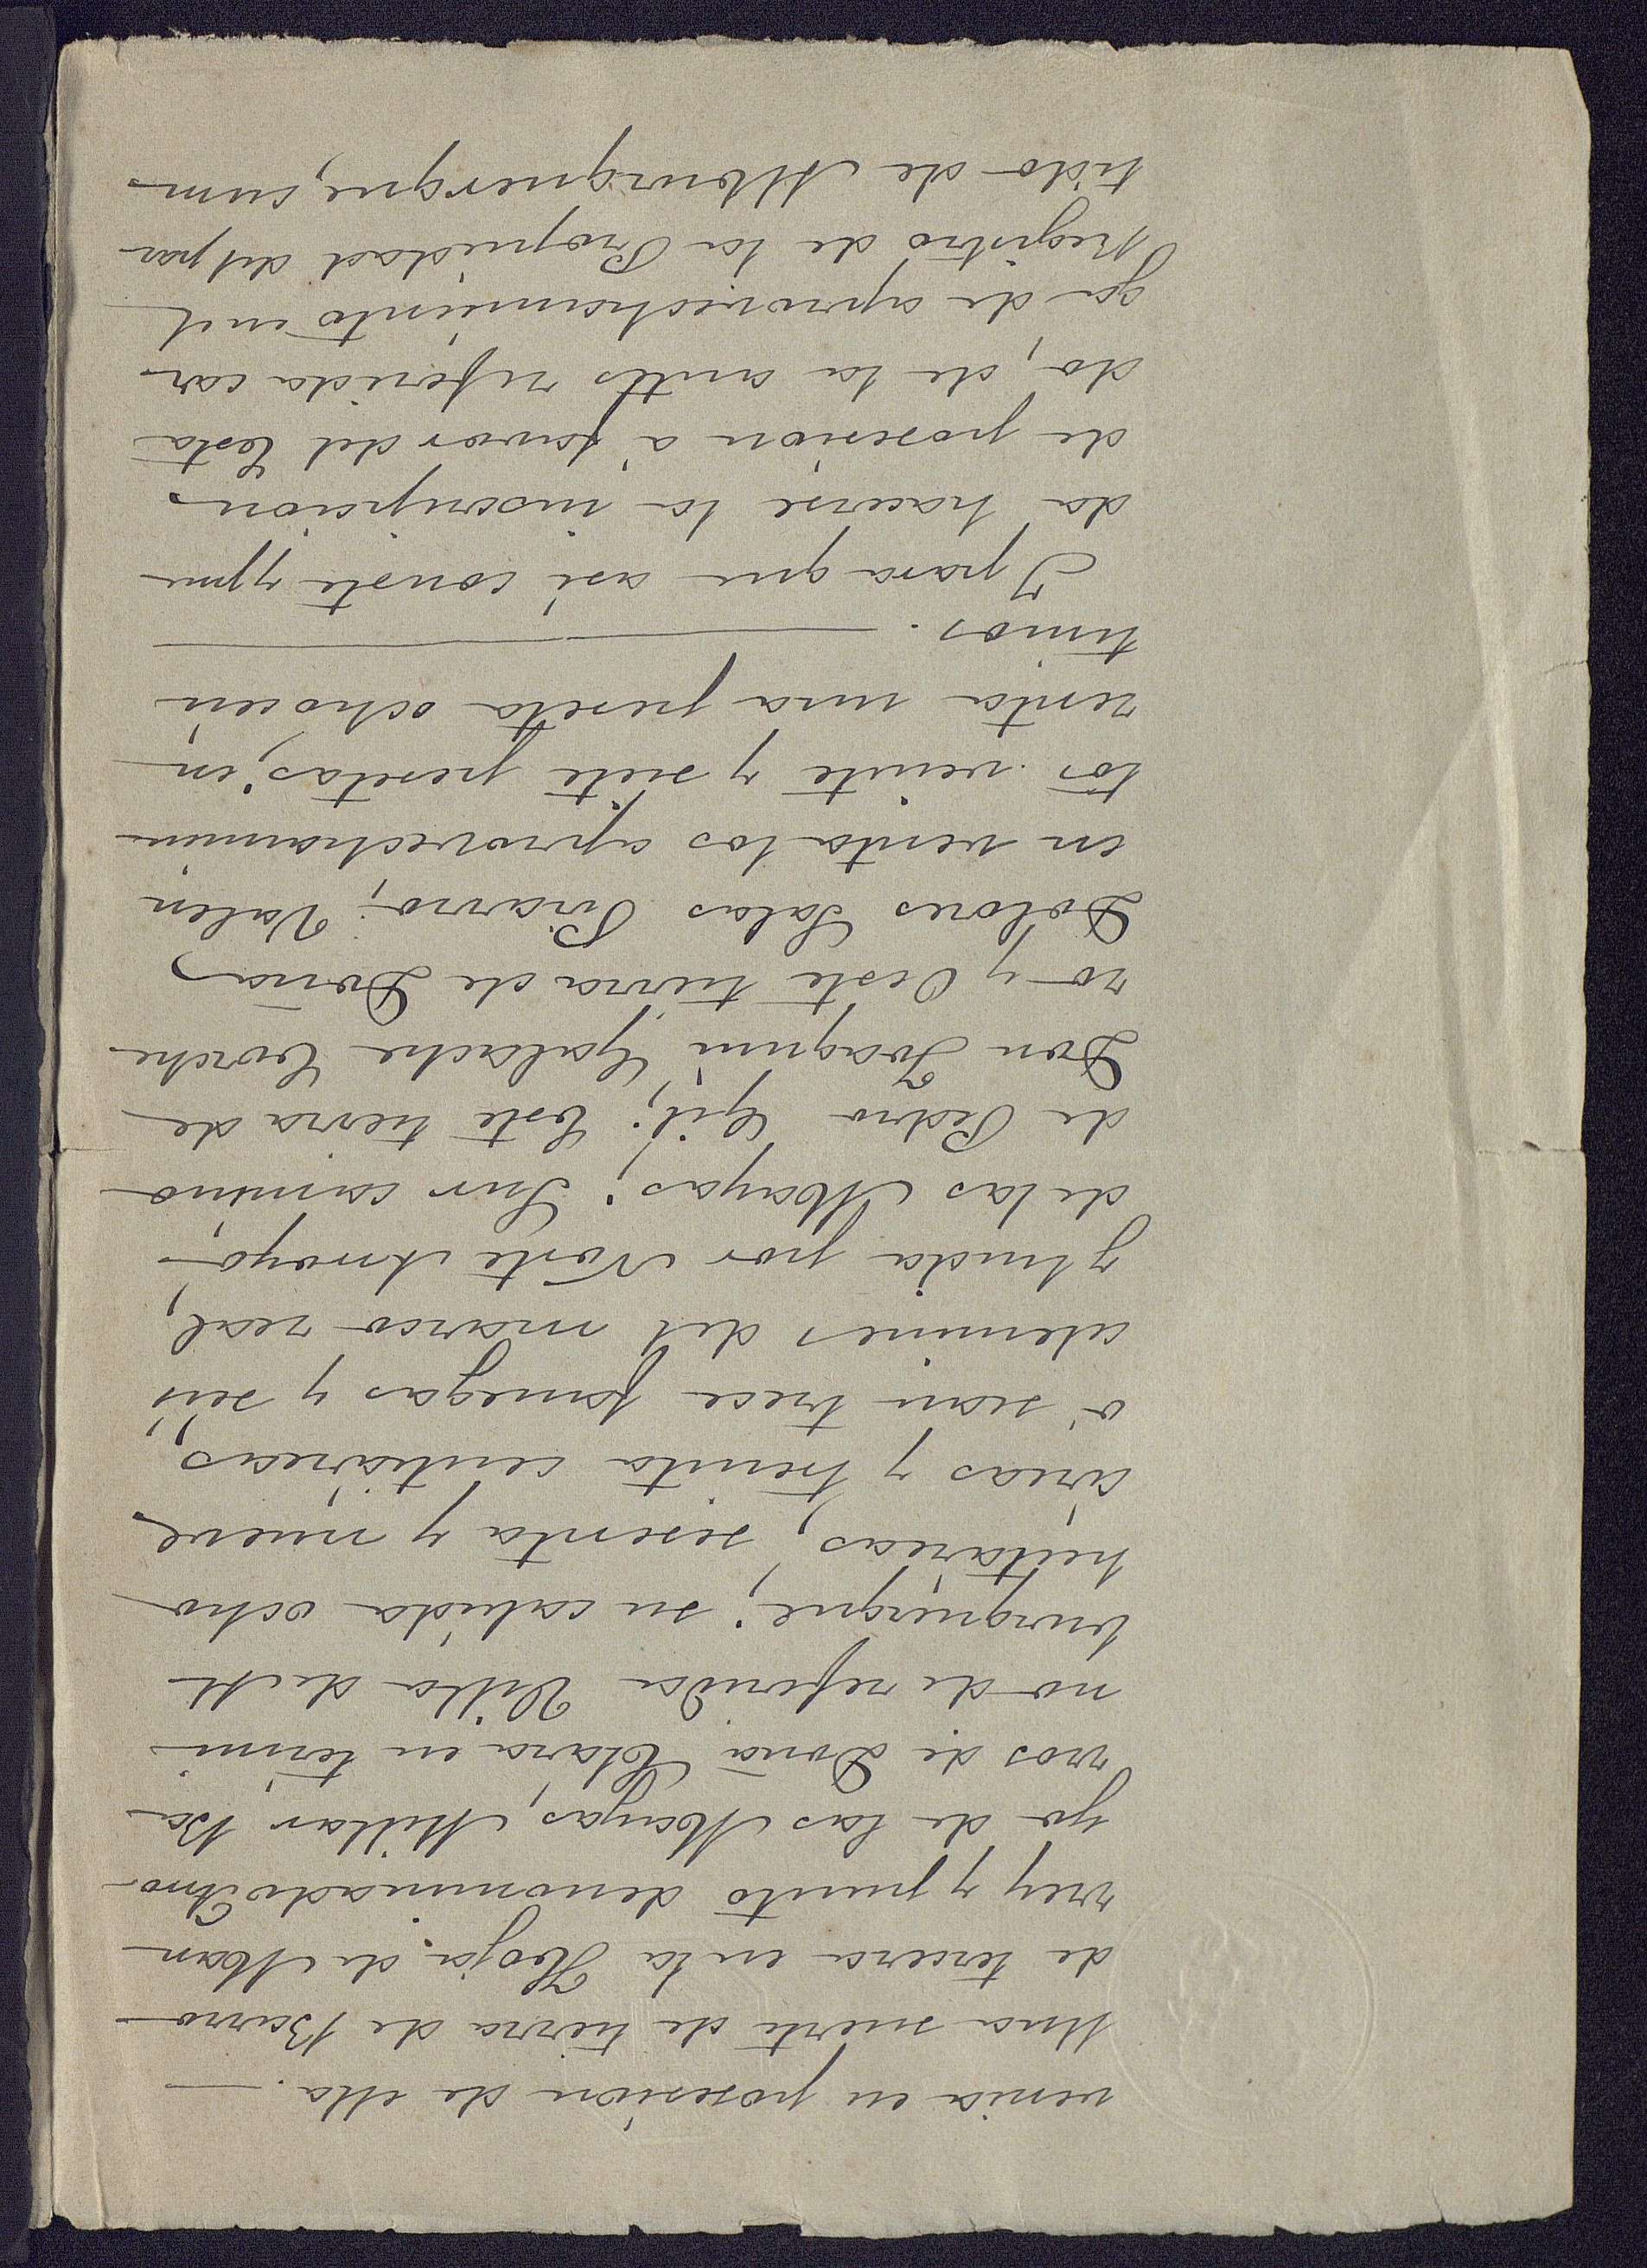 venia en posesión de ella.
Una suerte de tierra de Barro
de tercera en la Hoja de Mon
rey y punto denominado Arro-
yo de las Moyas, Millar Ba-
rros de Doña Clara en termi-
no de referida Villa de Al
burquerque; su cabida ocho
hectáreas, sesenta y nueve
áreas y treinta centiáreas,
ó sean trece fanegas y seis
celemines del marco real,
y linda por Norte Arroyo
de las Moyas; Sur camino
de Pedro Gil; Este tierra de
Don Joaquin Galache Corche
ro y Oeste tierra de Doña
Dolores Salas Pizarro; Valen
en venta los aprovechamien-
tos veinte y siete pesetas; en
renta una peseta ocho cén
timos.
Y para que asi conste y pue
da hacerse la inscripcion
de posesion á favor del Esta
do, de la antes referida car
ga de aprovechamiento en el
Registro de la Propiedad del par
tido de Alburquerque, cum